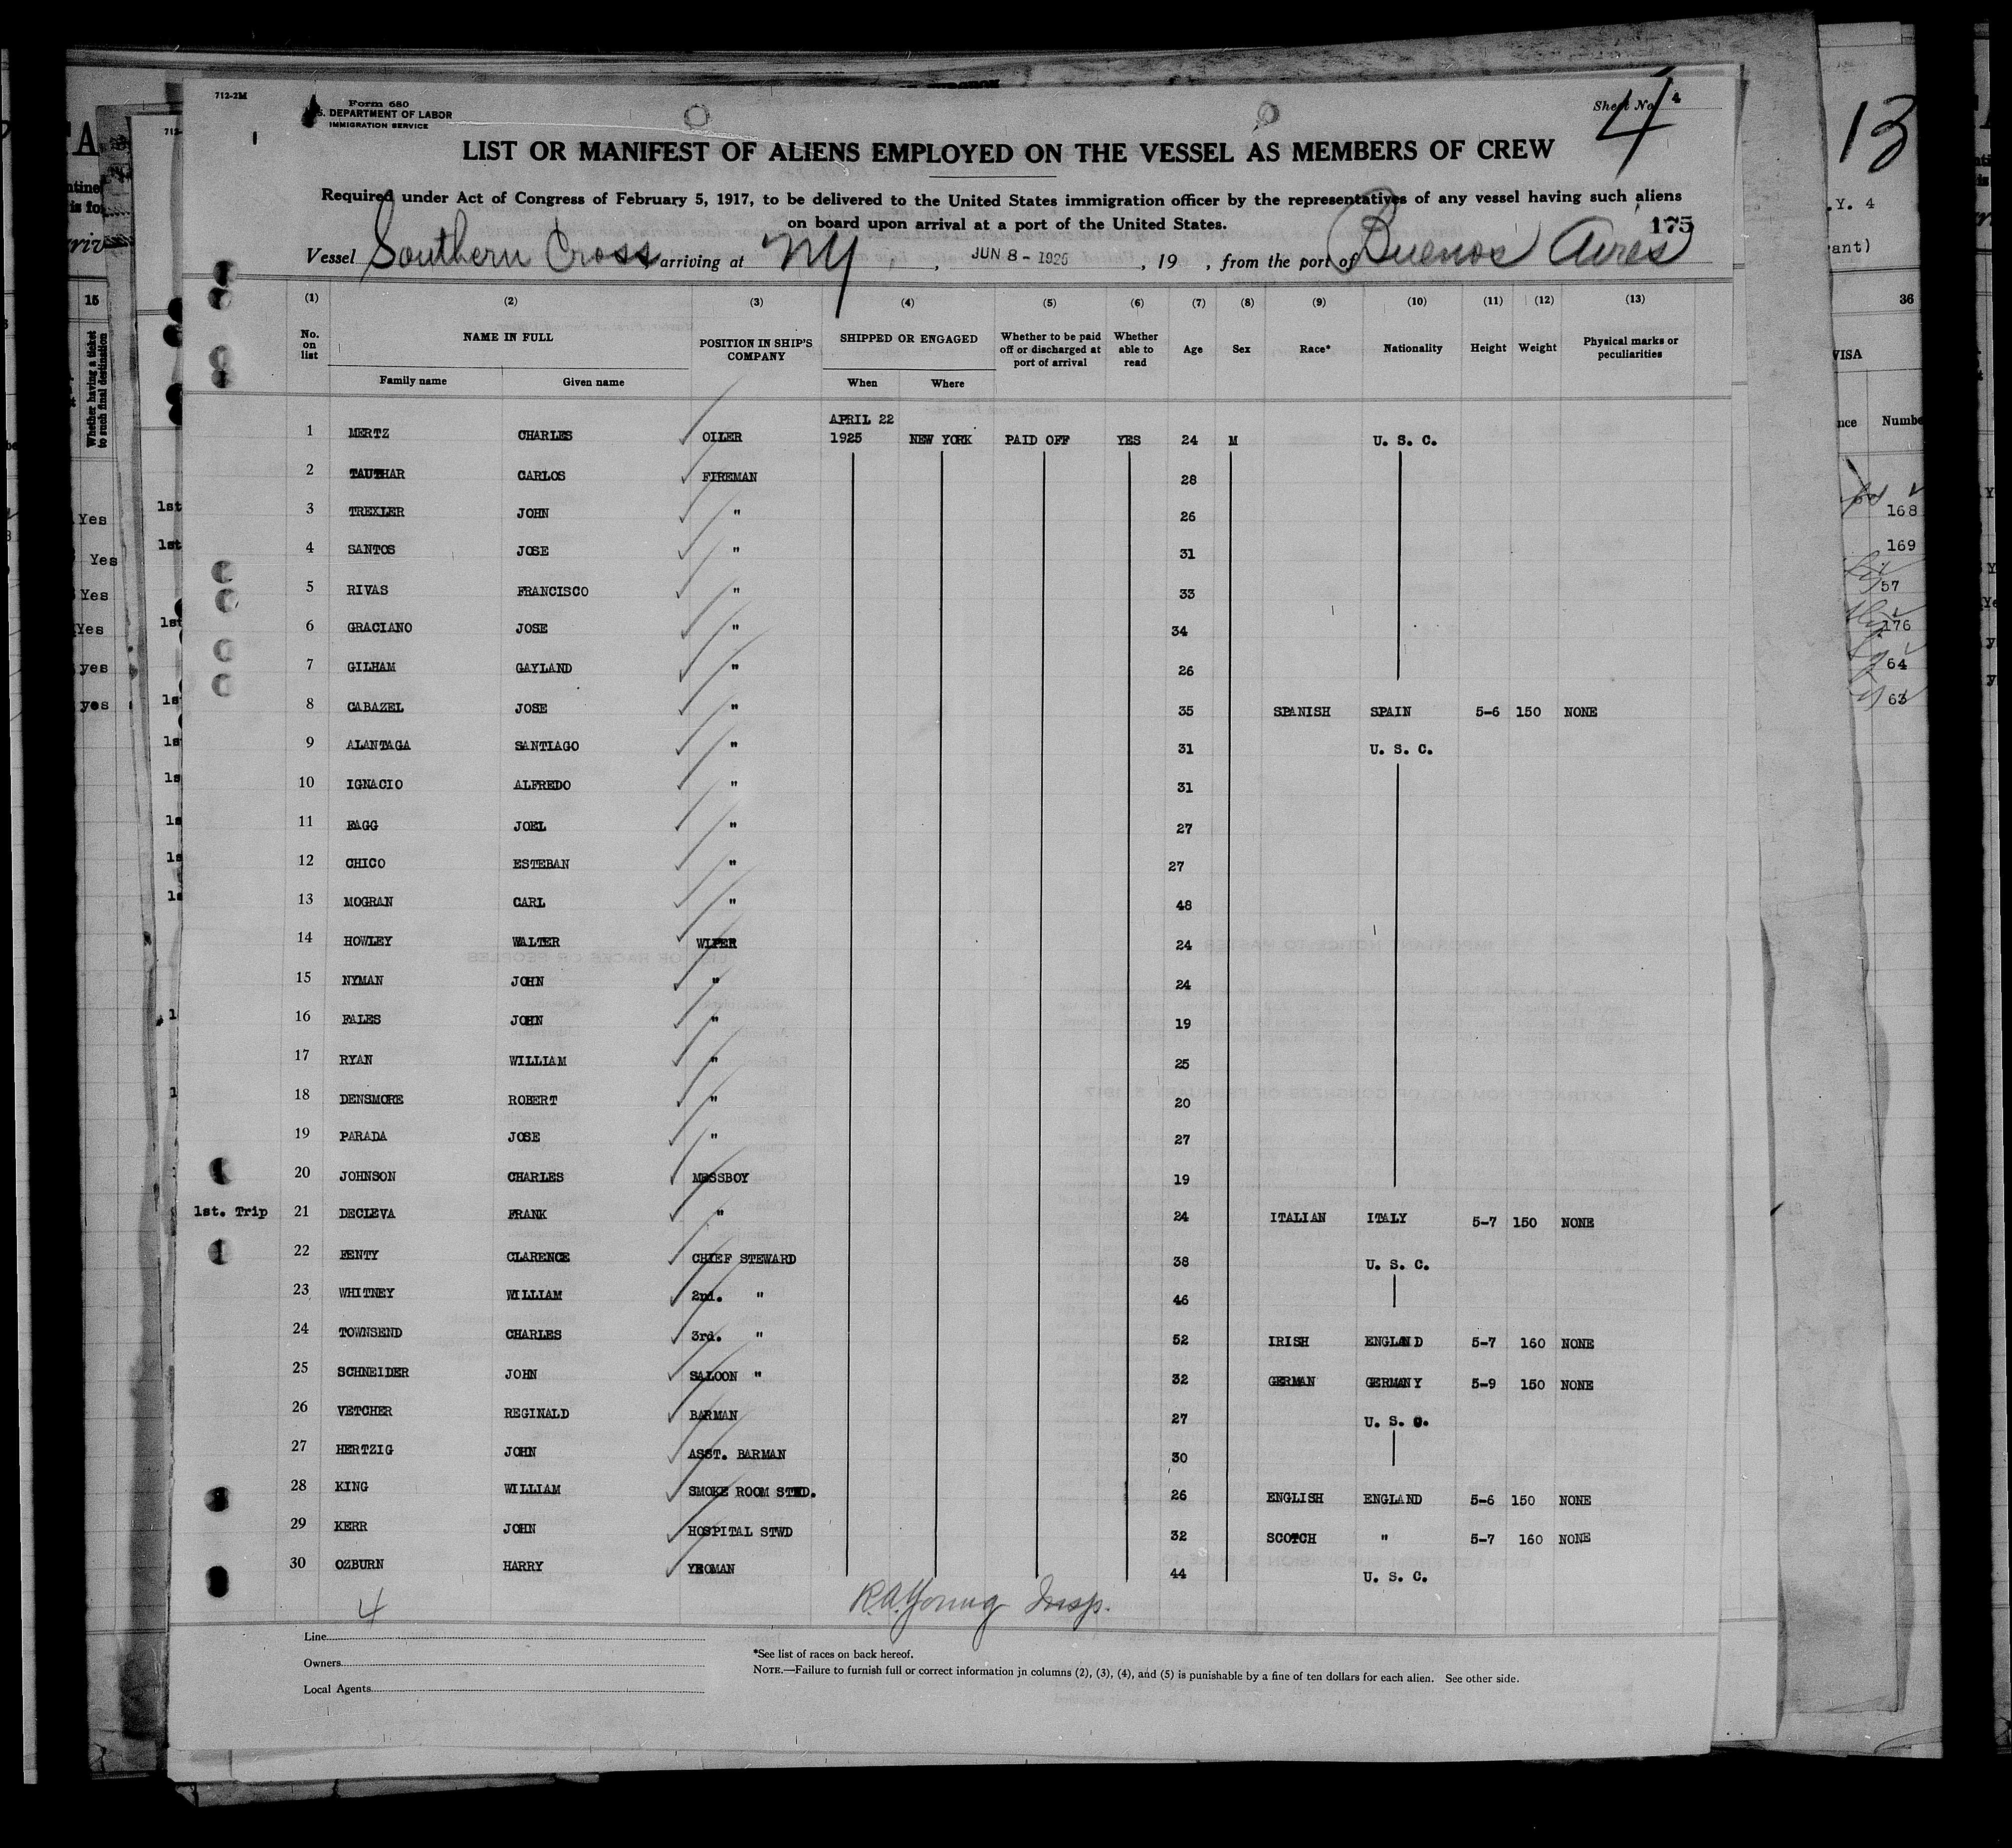 712-2M
Form 680
S. DEPARTMENT OF LABOR
IMMIGRATION SERVICE
Sheet No. 4
4
LIST OR MANIFEST OF ALIENS EMPLOYED ON THE VESSEL AS MEMBERS OF CREW
Required under Act of Congress of February 5, 1917, to be delivered to the United States immigration officer by the representatives of any vessel having such aliens
on board upon arrival at a port of the United States.
175
Vessel Southern Cross arriving at NY, JUN 8 - 1925, 19 , from the port of Buenos Aires
(1) (2) (3) (4) (5) (6) (7) (8) (9) (10) (11) (12) (13)
No. on list NAME IN FULL POSITION IN SHIP'S COMPANY SHIPPED OR ENGAGED Whether to be paid off or discharged at port of arrival Whether able to read Age Sex Race* Nationality Height Weight Physical marks or peculiarities
Family name Given name When Where
1 MERTZ CHARLES OILER APRIL 22 1925 NEW YORK PAID OFF YES 24 M U. S. C.
2 TAUTHAR CARLOS FIREMAN 28
3 TREXLER JOHN " 26
4 SANTOS JOSE " 31
5 RIVAS FRANCISCO " 33
6 GRACIANO JOSE " 34
7 GILHAM GAYLAND " 26
8 CABAZEL JOSE " 35 SPANISH SPAIN 5-6 150 NONE
9 ALANTAGA SANTIAGO " 31 U. S. C.
10 IGNACIO ALFREDO " 31
11 FAGG JOEL " 27
12 CHICO ESTEBAN " 27
13 MOGRAN CARL " 48
14 HOWLEY WALTER WIPER 24
15 NYMAN JOHN " 24
16 FALES JOHN " 19
17 RYAN WILLIAM " 25
18 DENSMORE ROBERT " 20
19 PARADA JOSE " 27
20 JOHNSON CHARLES MESSBOY 19
1st. Trip 21 DECLEVA FRANK " 24 ITALIAN ITALY 5-7 150 NONE
22 FENTY CLARENCE CHIEF STEWARD 38 U. S. C.
23 WHITNEY WILLIAM 2nd. " 46
24 TOWNSEND CHARLES 3rd. " 52 IRISH ENGLAND 5-7 160 NONE
25 SCHNEIDER JOHN SALOON " 32 GERMAN GERMANY 5-9 150 NONE
26 VETCHER REGINALD BARMAN 27 U. S. C.
27 HERTZIG JOHN ASST. BARMAN 30
28 KING WILLIAM SMOKE ROOM STWD. 26 ENGLISH ENGLAND 5-6 150 NONE
29 KERR JOHN HOSPITAL STWD 32 SCOTCH " 5-7 160 NONE
30 OZBURN HARRY YEOMAN 44 U. S. C.
4
R.A. Young Insp.
Line
Owners
Local Agents
*See list of races on back hereof.
NOTE.—Failure to furnish full or correct information in columns (2), (3), (4), and (5) is punishable by a fine of ten dollars for each alien. See other side.
13
Y. 4
ant)
36
VISA
nce Numbe
168
169
57
176
64
63
15
Whether having a ticket to such final destination
Yes
Yes
Yes
Yes
yes
yes
1st
1st